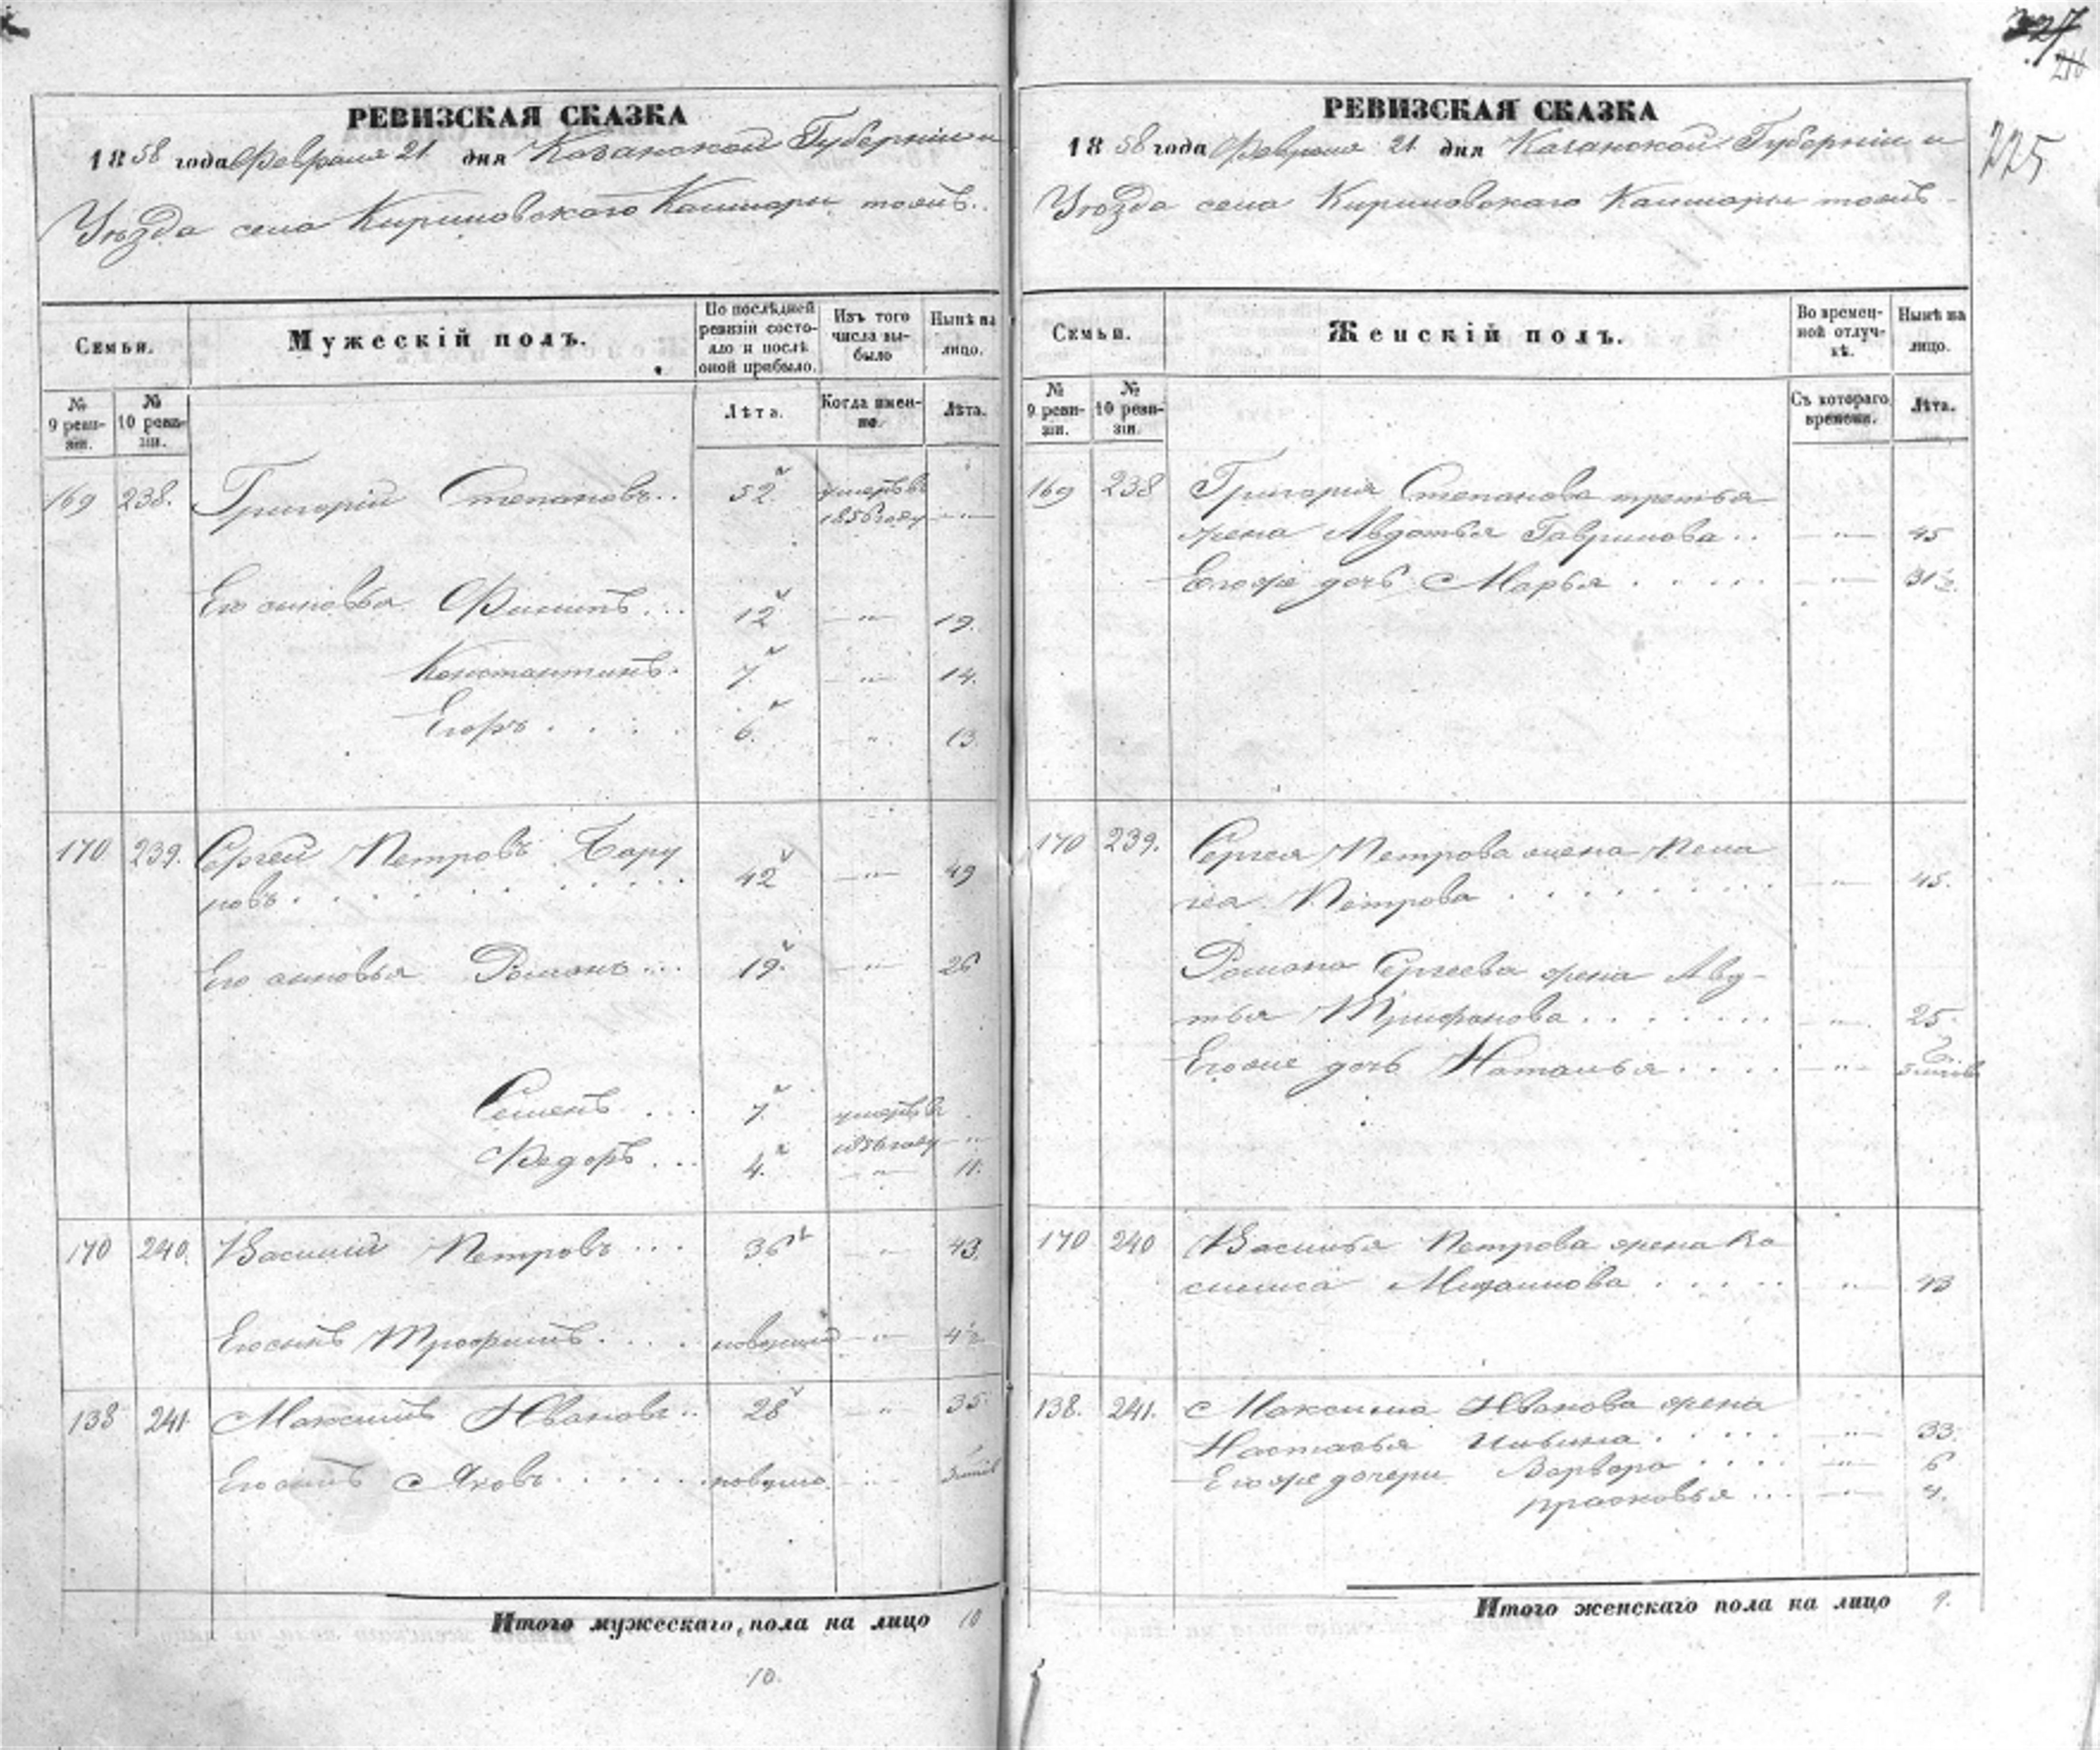 225
РЕВИЗСКАЯ СКАЗКА
1858 года Февраля 21 дня Казанской Губерніи и
Уѣзда села Кириловскаго Кашпары тожъ.
Семьи.
Мужескій полъ.
По послѣдней ревизіи состояло и послѣ оной прибыло.
Изъ того числа выбыло
Нынѣ на лицо.
№ 9 ревизіи.
№ 10 ревизіи.
Лѣта.
Когда именно.
Лѣта.
169 238. Григорій Степановъ.. 52. умеръ въ
1856 году — " —
Его сыновья Филипъ... 12 — " — 19.
Константинъ. 7. — " — 14.
Егоръ . . . . 6. — " . 13.
170 239. Сергей Петровъ
ровъ . . . . . . . . . 42 — " — 49
Его сыновья Романъ... 19. — " — 26
Семенъ . . . 7. умеръ въ
1856 году — "
Федоръ . . . 4. — " — 11.
170 240. Василій Петровъ . . . 36 — " 43.
Его сынъ Трофимъ . . . . новорожд — " — 4½
138 241 Максимъ Ивановъ.. 28 — " — 35
Его сынъ Яковъ . . . . .
Итого мужескаго пола на лицо 10
10.
РЕВИЗСКАЯ СКАЗКА
1858 года Февраля 21 дня Казанской Губерніи и
Уѣзда села Кириловскаго Кашпары тожъ
Семьи.
Женскій полъ.
Во временной отлучкѣ.
Нынѣ на лицо.
№ 9 ревизіи.
№ 10 ревизіи.
Съ котораго времени.
Лѣта.
169 238 Григорія Степанова третья
жена Авдотья Гаврилова . . — " — 45
Его же дочь Марья . . . . . — " —
170 239. Сергея Петрова жена Пела
гея Петрова . . . . . . . — " — 45.
Романа Сергеева жена Авдо-
тья Трифонова . . . . . . . — " — 25
Его же дочь Наталья . . . . — " —
170 240 Василья Петрова жена Ва
силиса Михаилова . . . . . — " — 43
138. 241. Максима Иванова жена
Настасья Ильина . . . . . — " — 33.
Его же дочери Варвара . . . . — " — 6
Прасковья . . . — " — 4.
Итого женскаго пола на лицо 9.